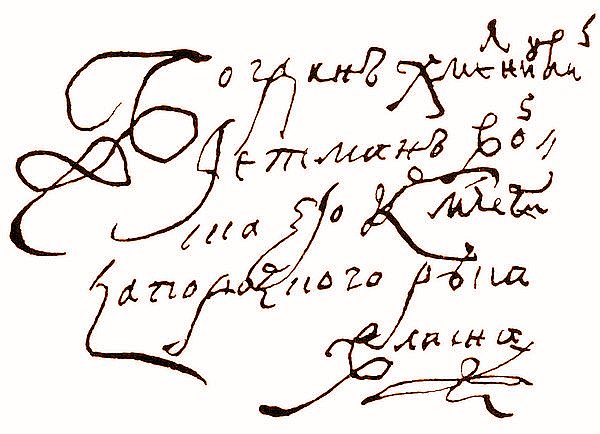 Богданъ Хмелницкий
Гетманъ Вой
ска его К Млсти
Запорозкого рука
власна